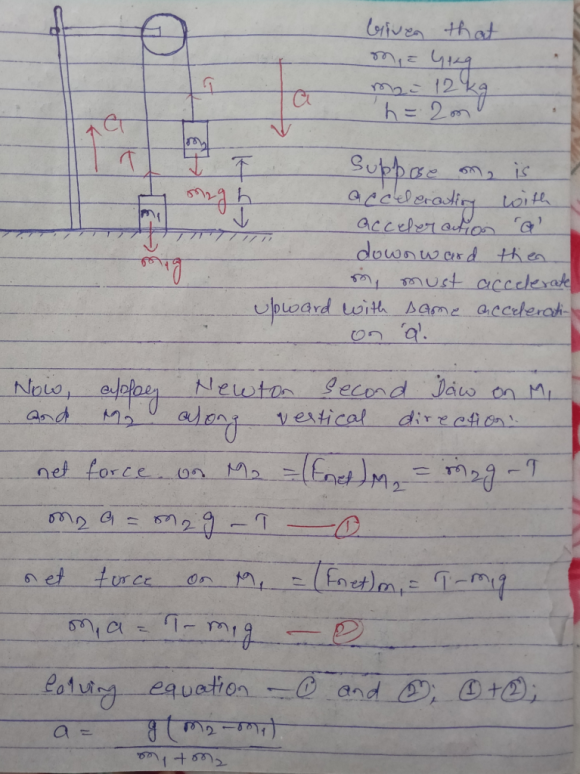 Given that
m₁ = 4kg
m₂ = 12 kg
h = 2m
T
a
a
m₂
T
m₂g
h
m₁
m₁g
Suppose m₂ is
accelerating with
acceleration 'a'
downward then
m₁ must accelerate
upward with same accelerati-
on 'a'.
Now, apply Newton Second Law on M₁
and M₂ along vertical direction:
net force on M₂ = (Fnet)M₂ = m₂g - T
m₂a = m₂g - T —①
net force on M₁ = (Fnet)m₁ = T - m₁g
m₁a = T - m₁g —②
Solving equation - ① and ②; ①+②;
a = g(m₂-m₁)
m₁+m₂